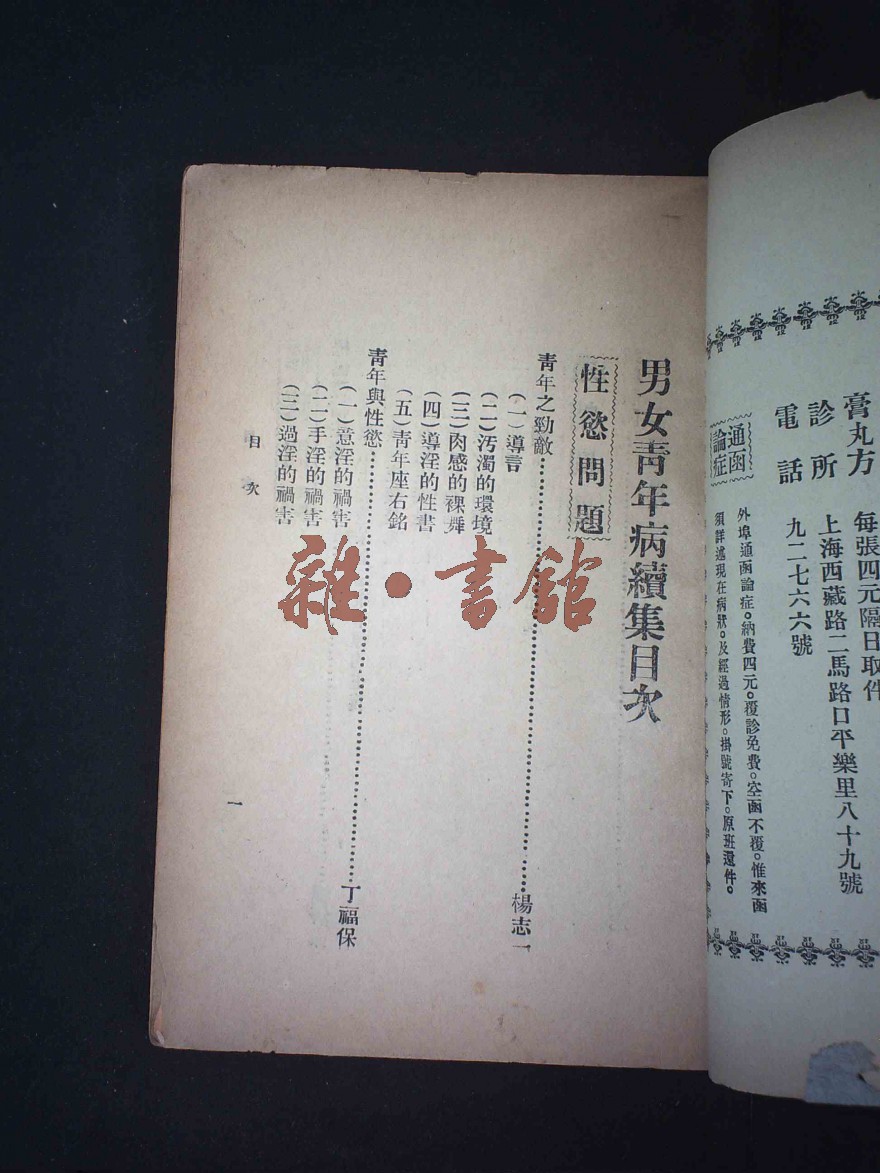 膏丸方
每張四元隔日取件
診所
上海西藏路二馬路口平樂里八十九號
電話
九二七六六號
通函論症
外埠通函論症。納費四元。覆診免費。空函不覆。惟來函
須詳述現在病狀。及經過情形。掛號寄下。原班還件。
男女靑年病續集目次
性慾問題
靑年之勁敵⋯⋯楊志一
(一)導言
(二)汚濁的環境
(三)肉感的裸舞
(四)導淫的性書
(五)靑年座右銘
靑年與性慾⋯⋯丁福保
(一)意淫的禍害
(二)手淫的禍害
(三)過淫的禍害
目次
一
雜·書館